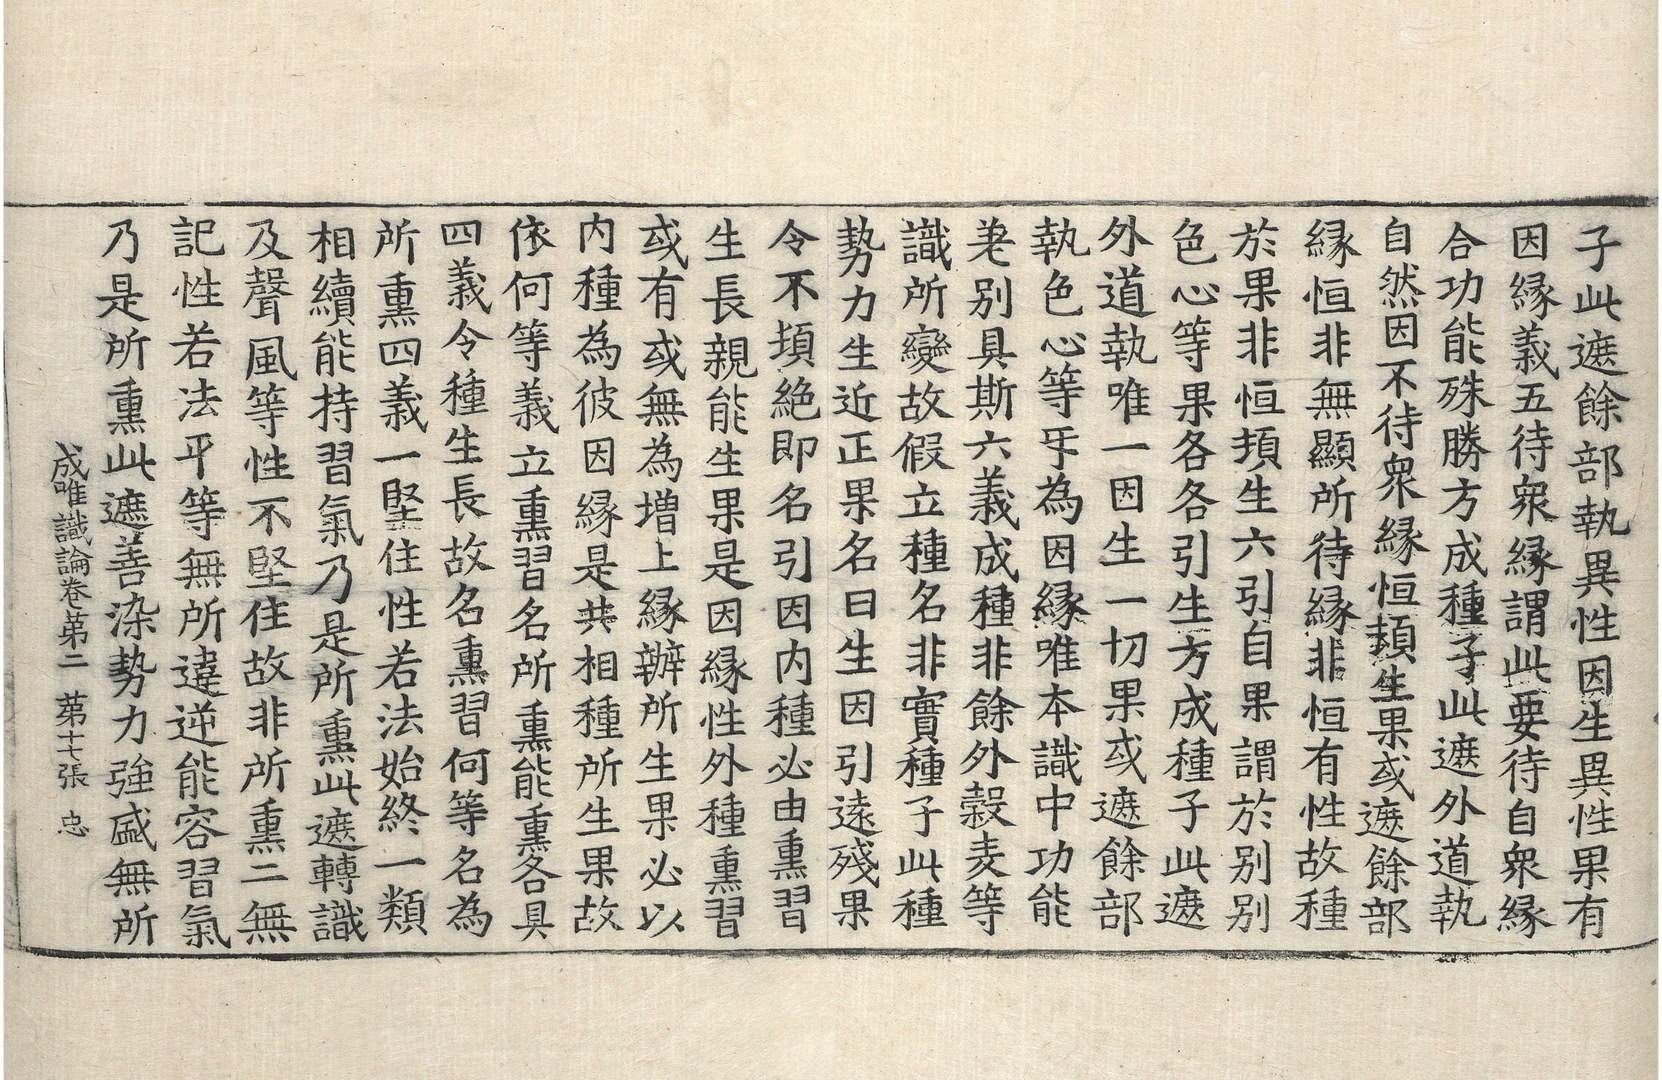 子此遮餘部執異性因生異性果有
因縁義五待衆縁謂此要待自衆縁
合功能殊勝方成種子此遮外道執
自然因不待衆縁恒頓生果或遮餘部
縁恒非無顯所待縁非恒有性故種
於果非恒頓生六引自果謂於别别
色心等果各各引生方成種子此遮
外道執唯一因生一切果或遮餘部
執色心等㸦為因縁唯本識中功能
差别具斯六義成種非餘外穀麦等
識所變故假立種名非實種子此種
勢力生近正果名曰生因引遠殘果
令不頓絶即名引因内種必由熏習
生長親能生果是因縁性外種熏習
或有或無為增上縁辦所生果必以
内種為彼因縁是共相種所生果故
依何等義立熏習名所熏能熏各具
四義令種生長故名熏習何等名為
所熏四義一堅住性若法始終一類
相續能持習氣乃是所熏此遮轉識
及聲風等性不堅住故非所熏二無
記性若法平等無所違逆能容習氣
乃是所熏此遮善染勢力強盛無所
成唯識論卷第二 第十七張 忠